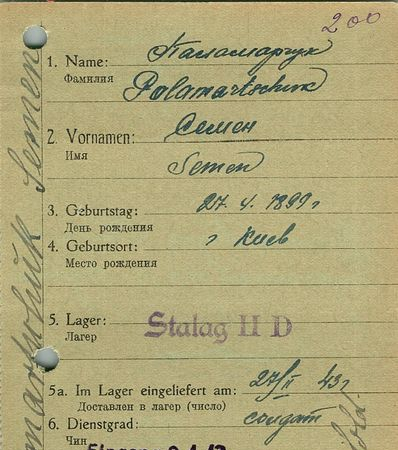 200
1. Name: Паламарчук
Фамилия Polamartschuk
2. Vornamen: Семен
Имя Semen
3. Geburtstag: 27. 4. 1899 г
День рождения
4. Geburtsort: г Киев
Место рождения
5. Lager: Stalag II D
Лагер
5a. Im Lager eingeliefert am: 27/II 43 г
Доставлен в лагер (число)
6. Dienstgrad: солдат
Чин
Semen